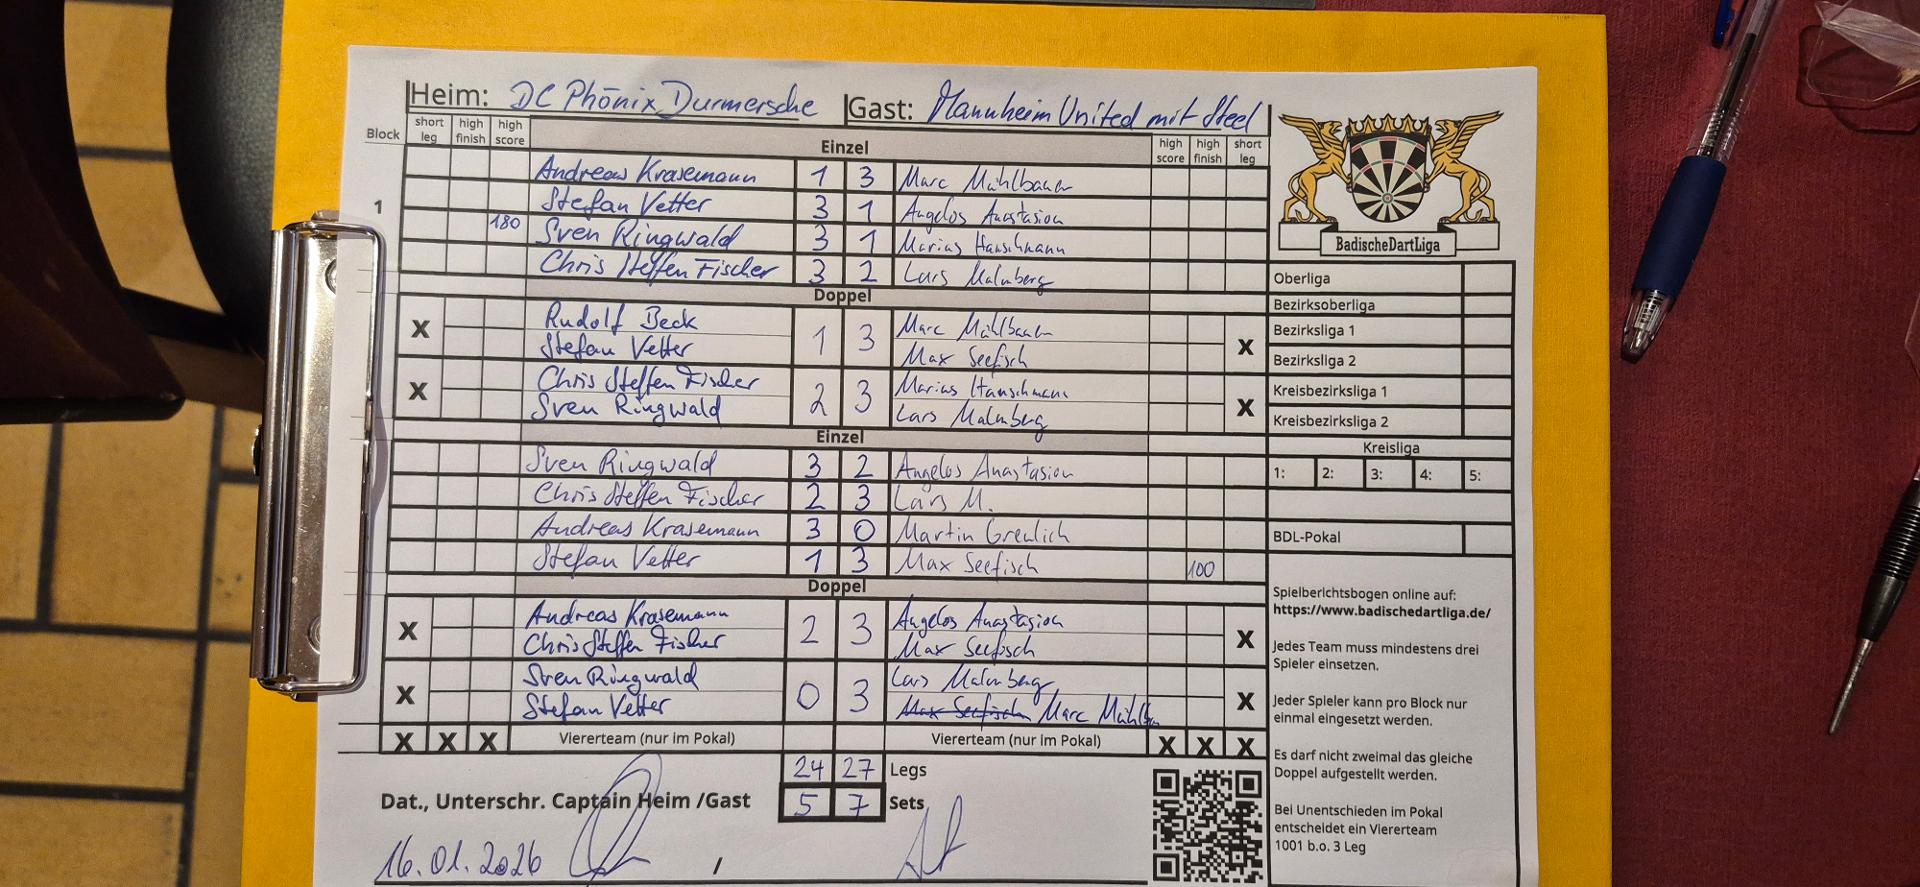 Heim: DC Phönix Durmersche Gast: Mannheim United mit Steel
Block short leg high finish high score Einzel high score high finish short leg
Andreas Krasemann 1 3 Marc Mühlbauer
1 Stefan Vetter 3 1 Angelos Anastasiou
180 Sven Ringwald 3 1 Marius Hanschmann
Chris Steffen Fischer 3 2 Lars Malmberg
Doppel
X Rudolf Beck 1 3 Marc Mühlbauer X
Stefan Vetter Max Seefisch
X Chris Steffen Fischer 2 3 Marius Hanschmann X
Sven Ringwald Lars Malmberg
Einzel
Sven Ringwald 3 2 Angelos Anastasiou
Chris Steffen Fischer 2 3 Lars M.
Andreas Krasemann 3 0 Martin Greulich
Stefan Vetter 1 3 Max Seefisch 100
Doppel
X Andreas Krasemann 2 3 Angelos Anastasiou X
Chris Steffen Fischer Max Seefisch
X Sven Ringwald 0 3 Lars Malmberg X
Stefan Vetter Max Seefisch Marc
X X X Viererteam (nur im Pokal) Viererteam (nur im Pokal) X X X
24 27 Legs
Dat., Unterschr. Captain Heim /Gast 5 7 Sets
16.01.2026 /
BadischeDartLiga
Oberliga
Bezirksoberliga
Bezirksliga 1
Bezirksliga 2
Kreisbezirksliga 1
Kreisbezirksliga 2
Kreisliga
1: 2: 3: 4: 5:
BDL-Pokal
Spielberichtsbogen online auf:
https://www.badischedartliga.de/
Jedes Team muss mindestens drei
Spieler einsetzen.
Jeder Spieler kann pro Block nur
einmal eingesetzt werden.
Es darf nicht zweimal das gleiche
Doppel aufgestellt werden.
Bei Unentschieden im Pokal
entscheidet ein Viererteam
1001 b.o. 3 Leg